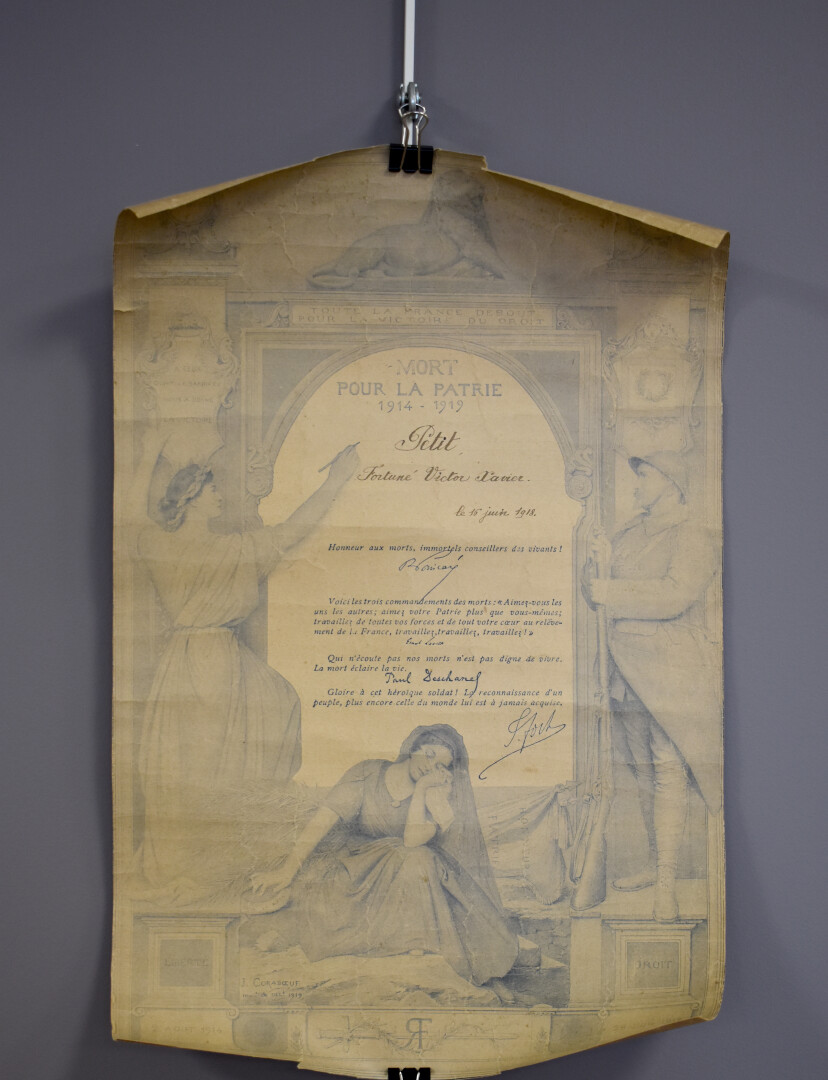 TOUTE LA FRANCE DEBOUT
POUR LA VICTOIRE DU DROIT
MORT
POUR LA PATRIE
1914 - 1919
Petit
Fortuné Victor Xavier.
le 15 juin 1918.
Honneur aux morts, immortels conseillers des vivants!
R Poincaré
Voici les trois commandements des morts: « Aimez-vous les
uns les autres; aimez votre Patrie plus que vous-mêmes;
travaillez de toutes vos forces et de tout votre cœur au relève-
ment de la France, travaillez, travaillez, travaillez! »
Qui n'écoute pas nos morts n'est pas digne de vivre.
La mort éclaire la vie.
Paul Deschanel
Gloire à cet héroïque soldat! La reconnaissance d'un
peuple, plus encore celle du monde lui est à jamais acquise.
LIBERTÉ
DROIT
J. CORABŒUF
RF